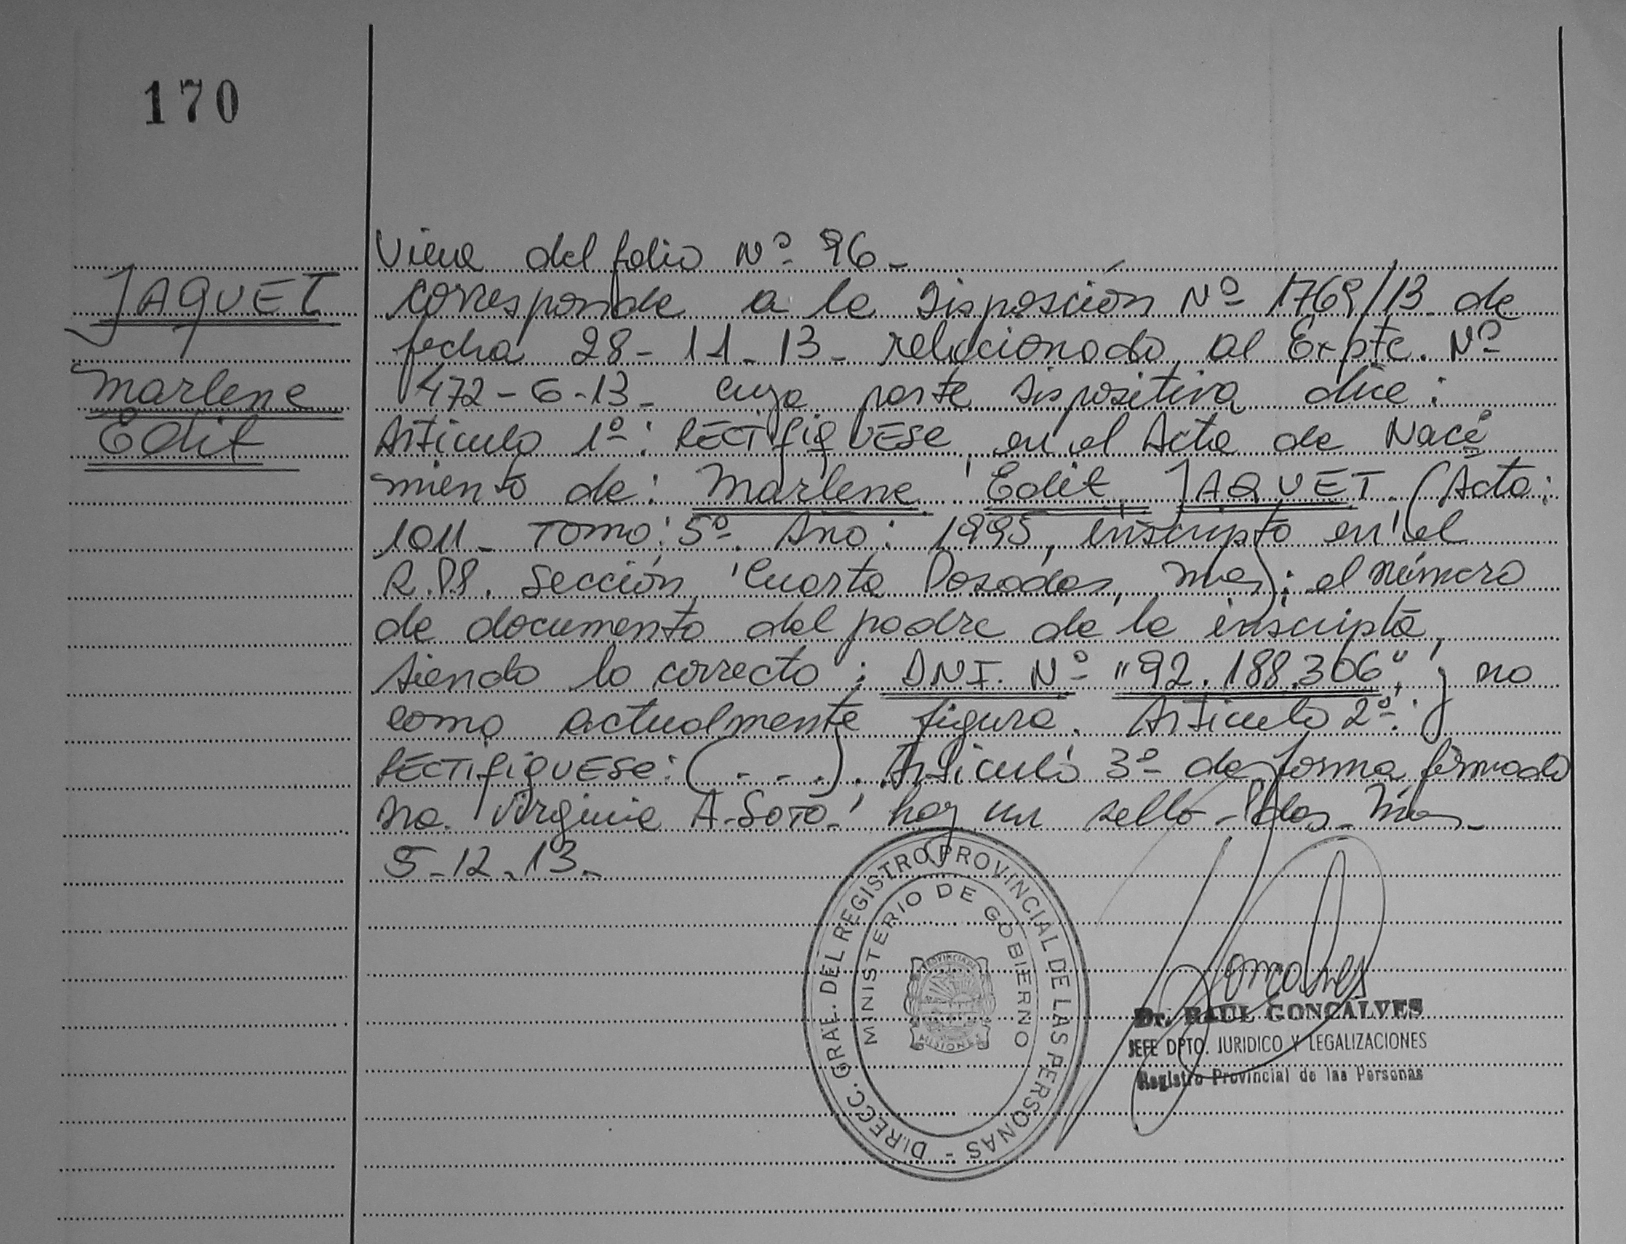 170
JAQUET
Marlene
Edit
Viene del folio Nº 96-
corresponde a la Disposción Nº 1769/13 de
fecha 28-11-13- relacionado al Expte. Nº
472-6-13- cuya parte dispositiva dice:
Articulo 1º: RECTIFIQUESE en el Acta de Naci
miento de: Marlene Edit JAQUET (Acta:
1011- Tomo: 5º. Año: 1995, inscripto en el
R.PS. Sección Cuarta Posadas, Mnes); el número
de documento del padre de la inscripta,
siendo lo correcto: DNI. Nº "92.188.306", y no
como actualmente figura. Articulo 2º:
RECTIFIQUESE: (...). Articulo 3º de forma firmado
Virginia A. Soto- hay un sello- Pdas- Mnes-
5-12-13-
DIRECC. GRAL. DEL REGISTRO PROVINCIAL DE LAS PERSONAS -
MINISTERIO DE GOBIERNO
MISIONES
Goncalves
Dr. RAUL GONCALVES
JEFE DPTO. JURIDICO Y LEGALIZACIONES
Registro Provincial de las Personas